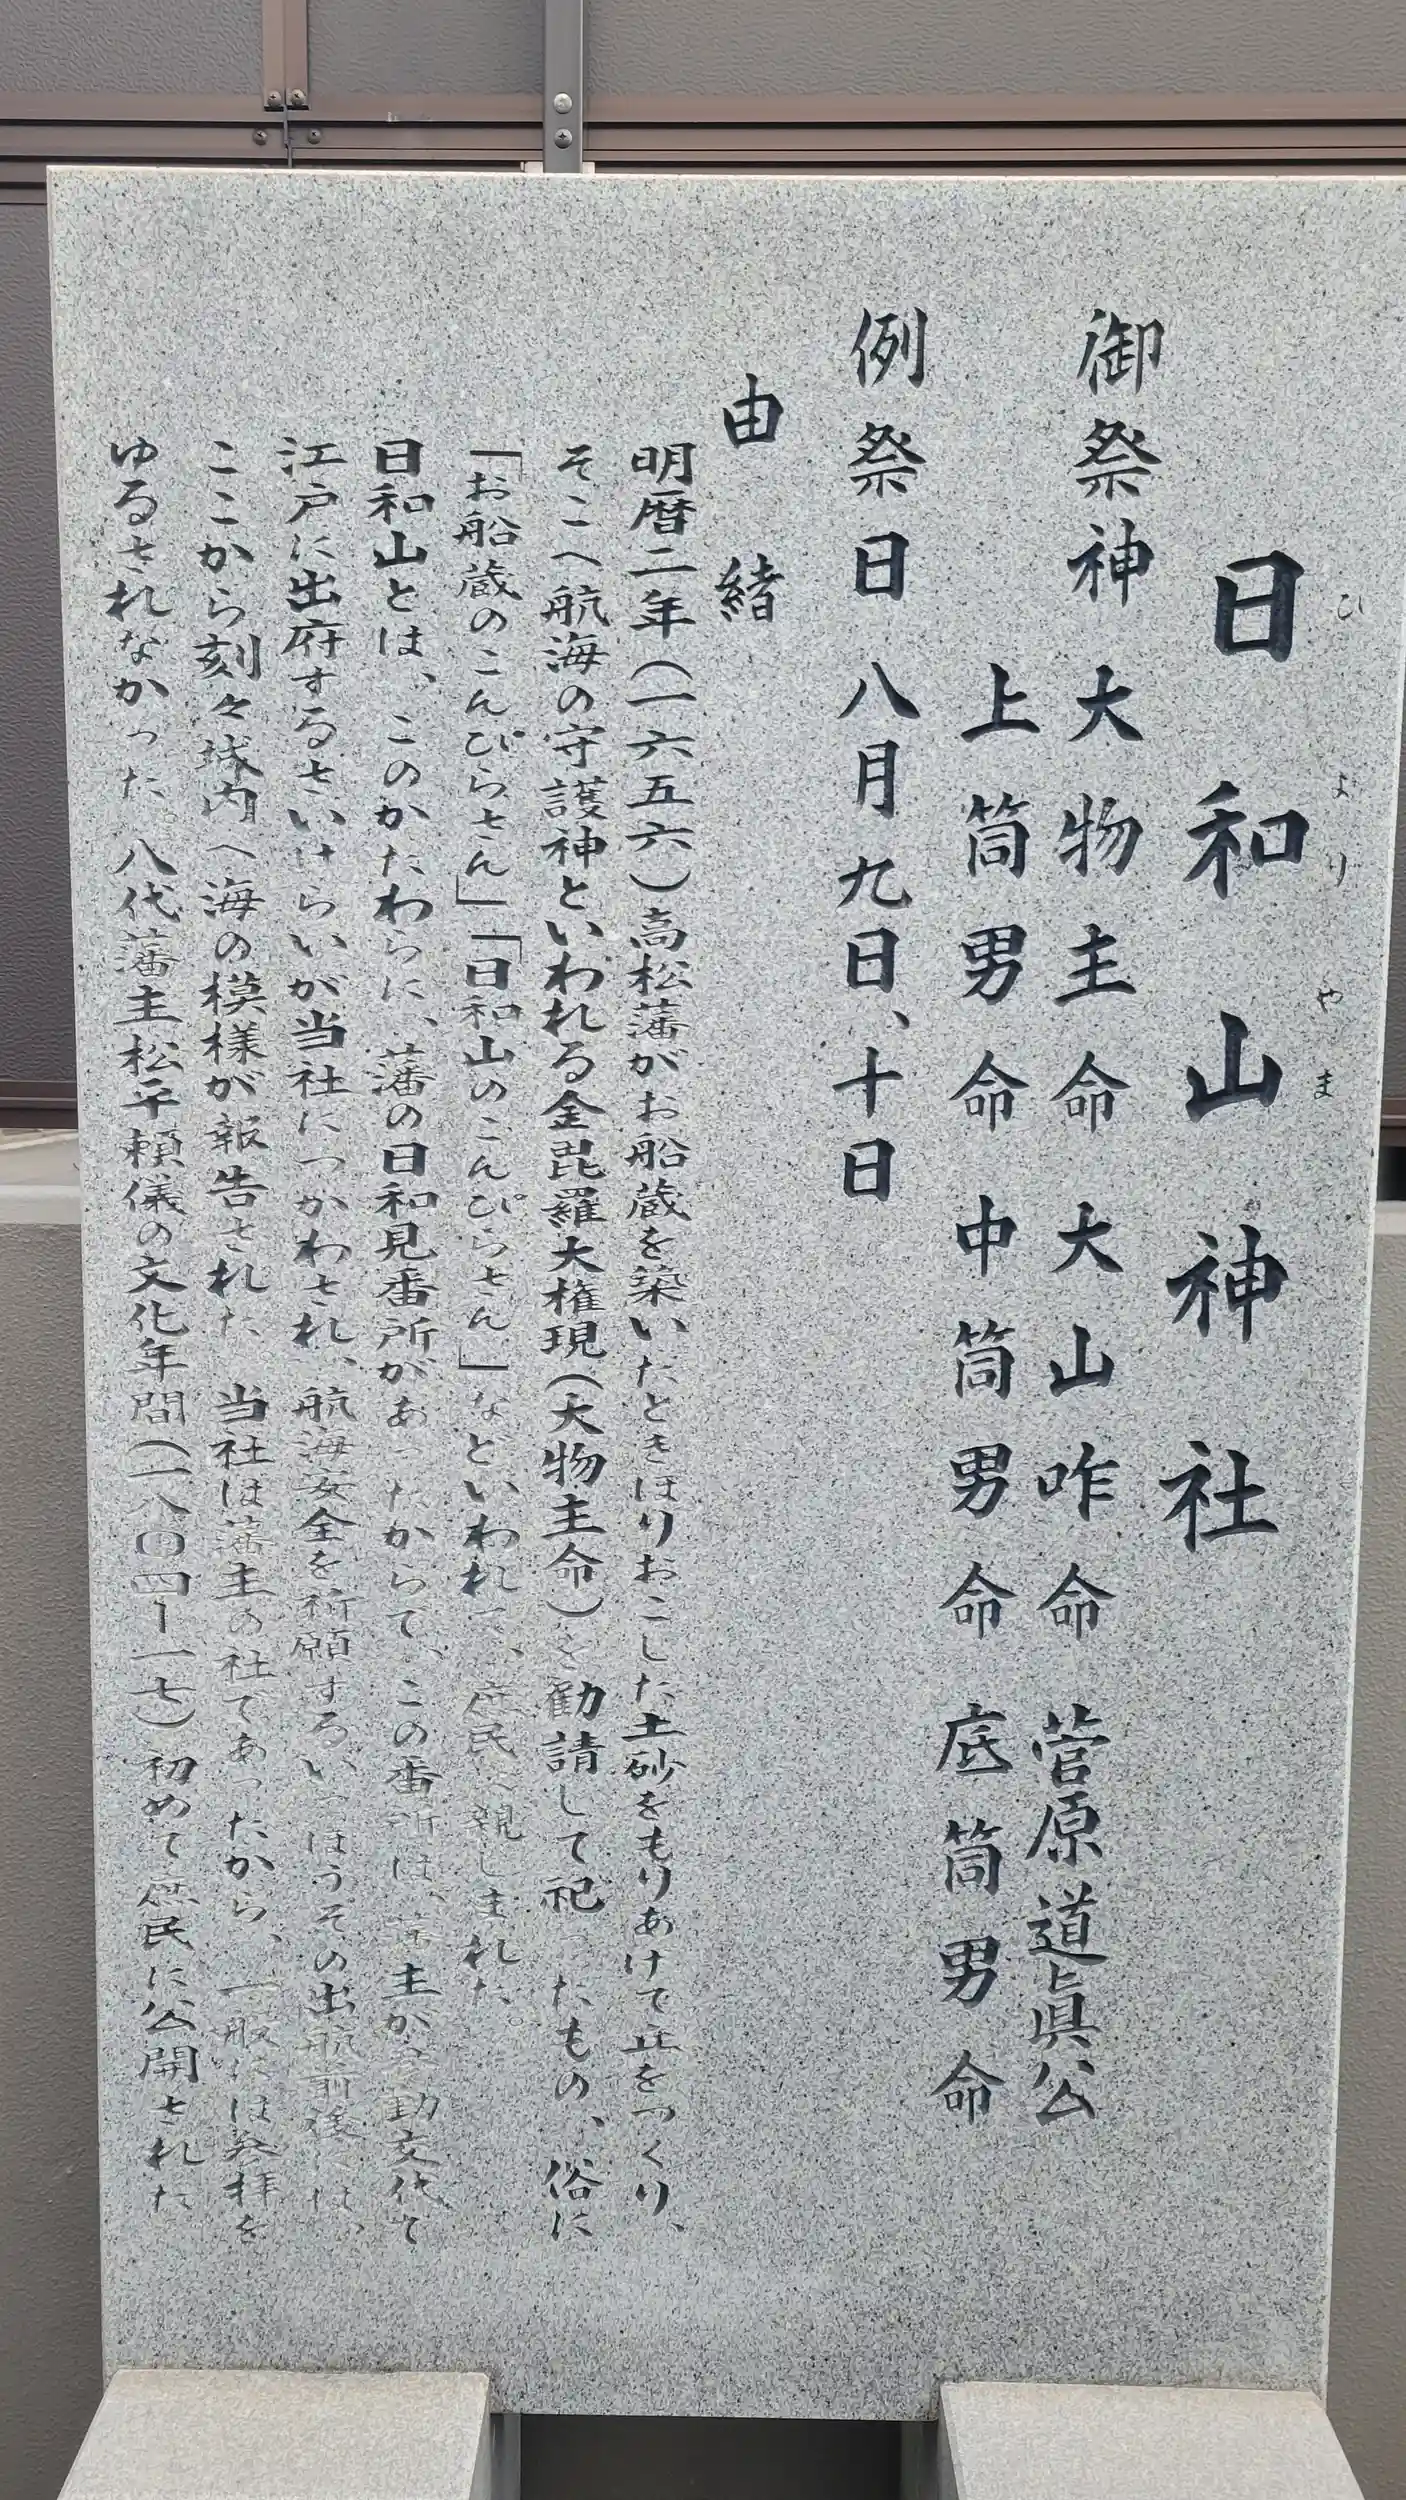 日和山神社
ひよりやま
御祭神 大物主命 大山咋命 菅原道眞公
上筒男命 中筒男命 底筒男命
例祭日 八月九日、十日
由緒
明暦二年(一六五六)高松藩がお船蔵を築いたときほりおこした土砂をもりあげて丘をつくり、
そこへ航海の守護神といわれる金毘羅大権現(大物主命)を勧請して祀ったもの、俗に
「お船蔵のこんぴらさん」「日和山のこんぴらさん」などいわれて、庶民へ親しまれた。
日和山とは、このかたわらに、藩の日和見番所があったからで、この番所は、藩主が参勤交代で
江戸に出府するさいけらいが当社につかわされ、航海安全を祈願するいっぽうその出航前後には、
ここから刻々城内へ海の模様が報告された 当社は藩主の社であったから、一般には参拝を
ゆるされなかった 八代藩主松平頼儀の文化年間(一八〇四ー一七)初めて庶民に公開された